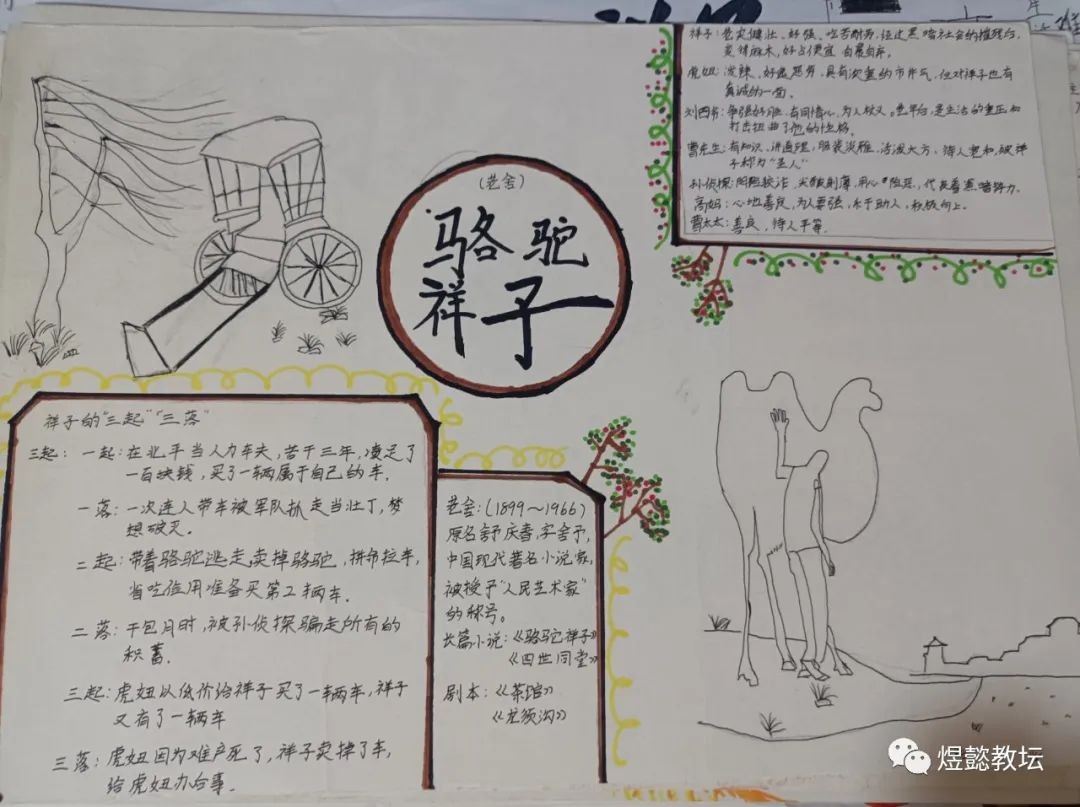 (老舍)
骆驼
祥子
祥子：老实健壮、好强、吃苦耐劳，经过黑暗社会的摧残后，
变得麻木，好占便宜，自暴自弃。
虎妞：泼辣、好逸恶劳，具有浓重的市井气，但对祥子也有
真诚的一面。
刘四爷：争强好胜，有同情心，为人仗义。老年后，是生活的重压和
打击扭曲了他的性格。
曹先生：有知识、讲道理，服装淡雅，活泼大方、待人宽和，被祥
子称为“圣人”
孙侦探：阴险狡诈，尖酸刻薄，用心险恶，代表着黑暗势力。
高妈：心地善良，为人要强，乐于助人，积极向上。
曹太太：善良，待人平等。
祥子的“三起”“三落”
三起：一起：在北平当人力车夫，苦干三年，凑足了
一百块钱，买了一辆属于自己的车。
一落：一次连人带车被军队抓走当壮丁，梦
想破灭。
二起：带着骆驼逃走，卖掉骆驼，拼命拉车，
省吃俭用准备买第2辆车。
二落：干包月时，被孙侦探骗走所有的
积蓄。
三起：虎妞以低价给祥子买了一辆车，祥子
又有了一辆车
三落：虎妞因为难产死了，祥子卖掉了车，
给虎妞办后事。
老舍：(1899～1966)
原名舒庆春，字舍予，
中国现代著名小说家，
被授予“人民艺术家”
的称号。
长篇小说：《骆驼祥子》
《四世同堂》
剧本：《茶馆》
《龙须沟》
煜懿教坛